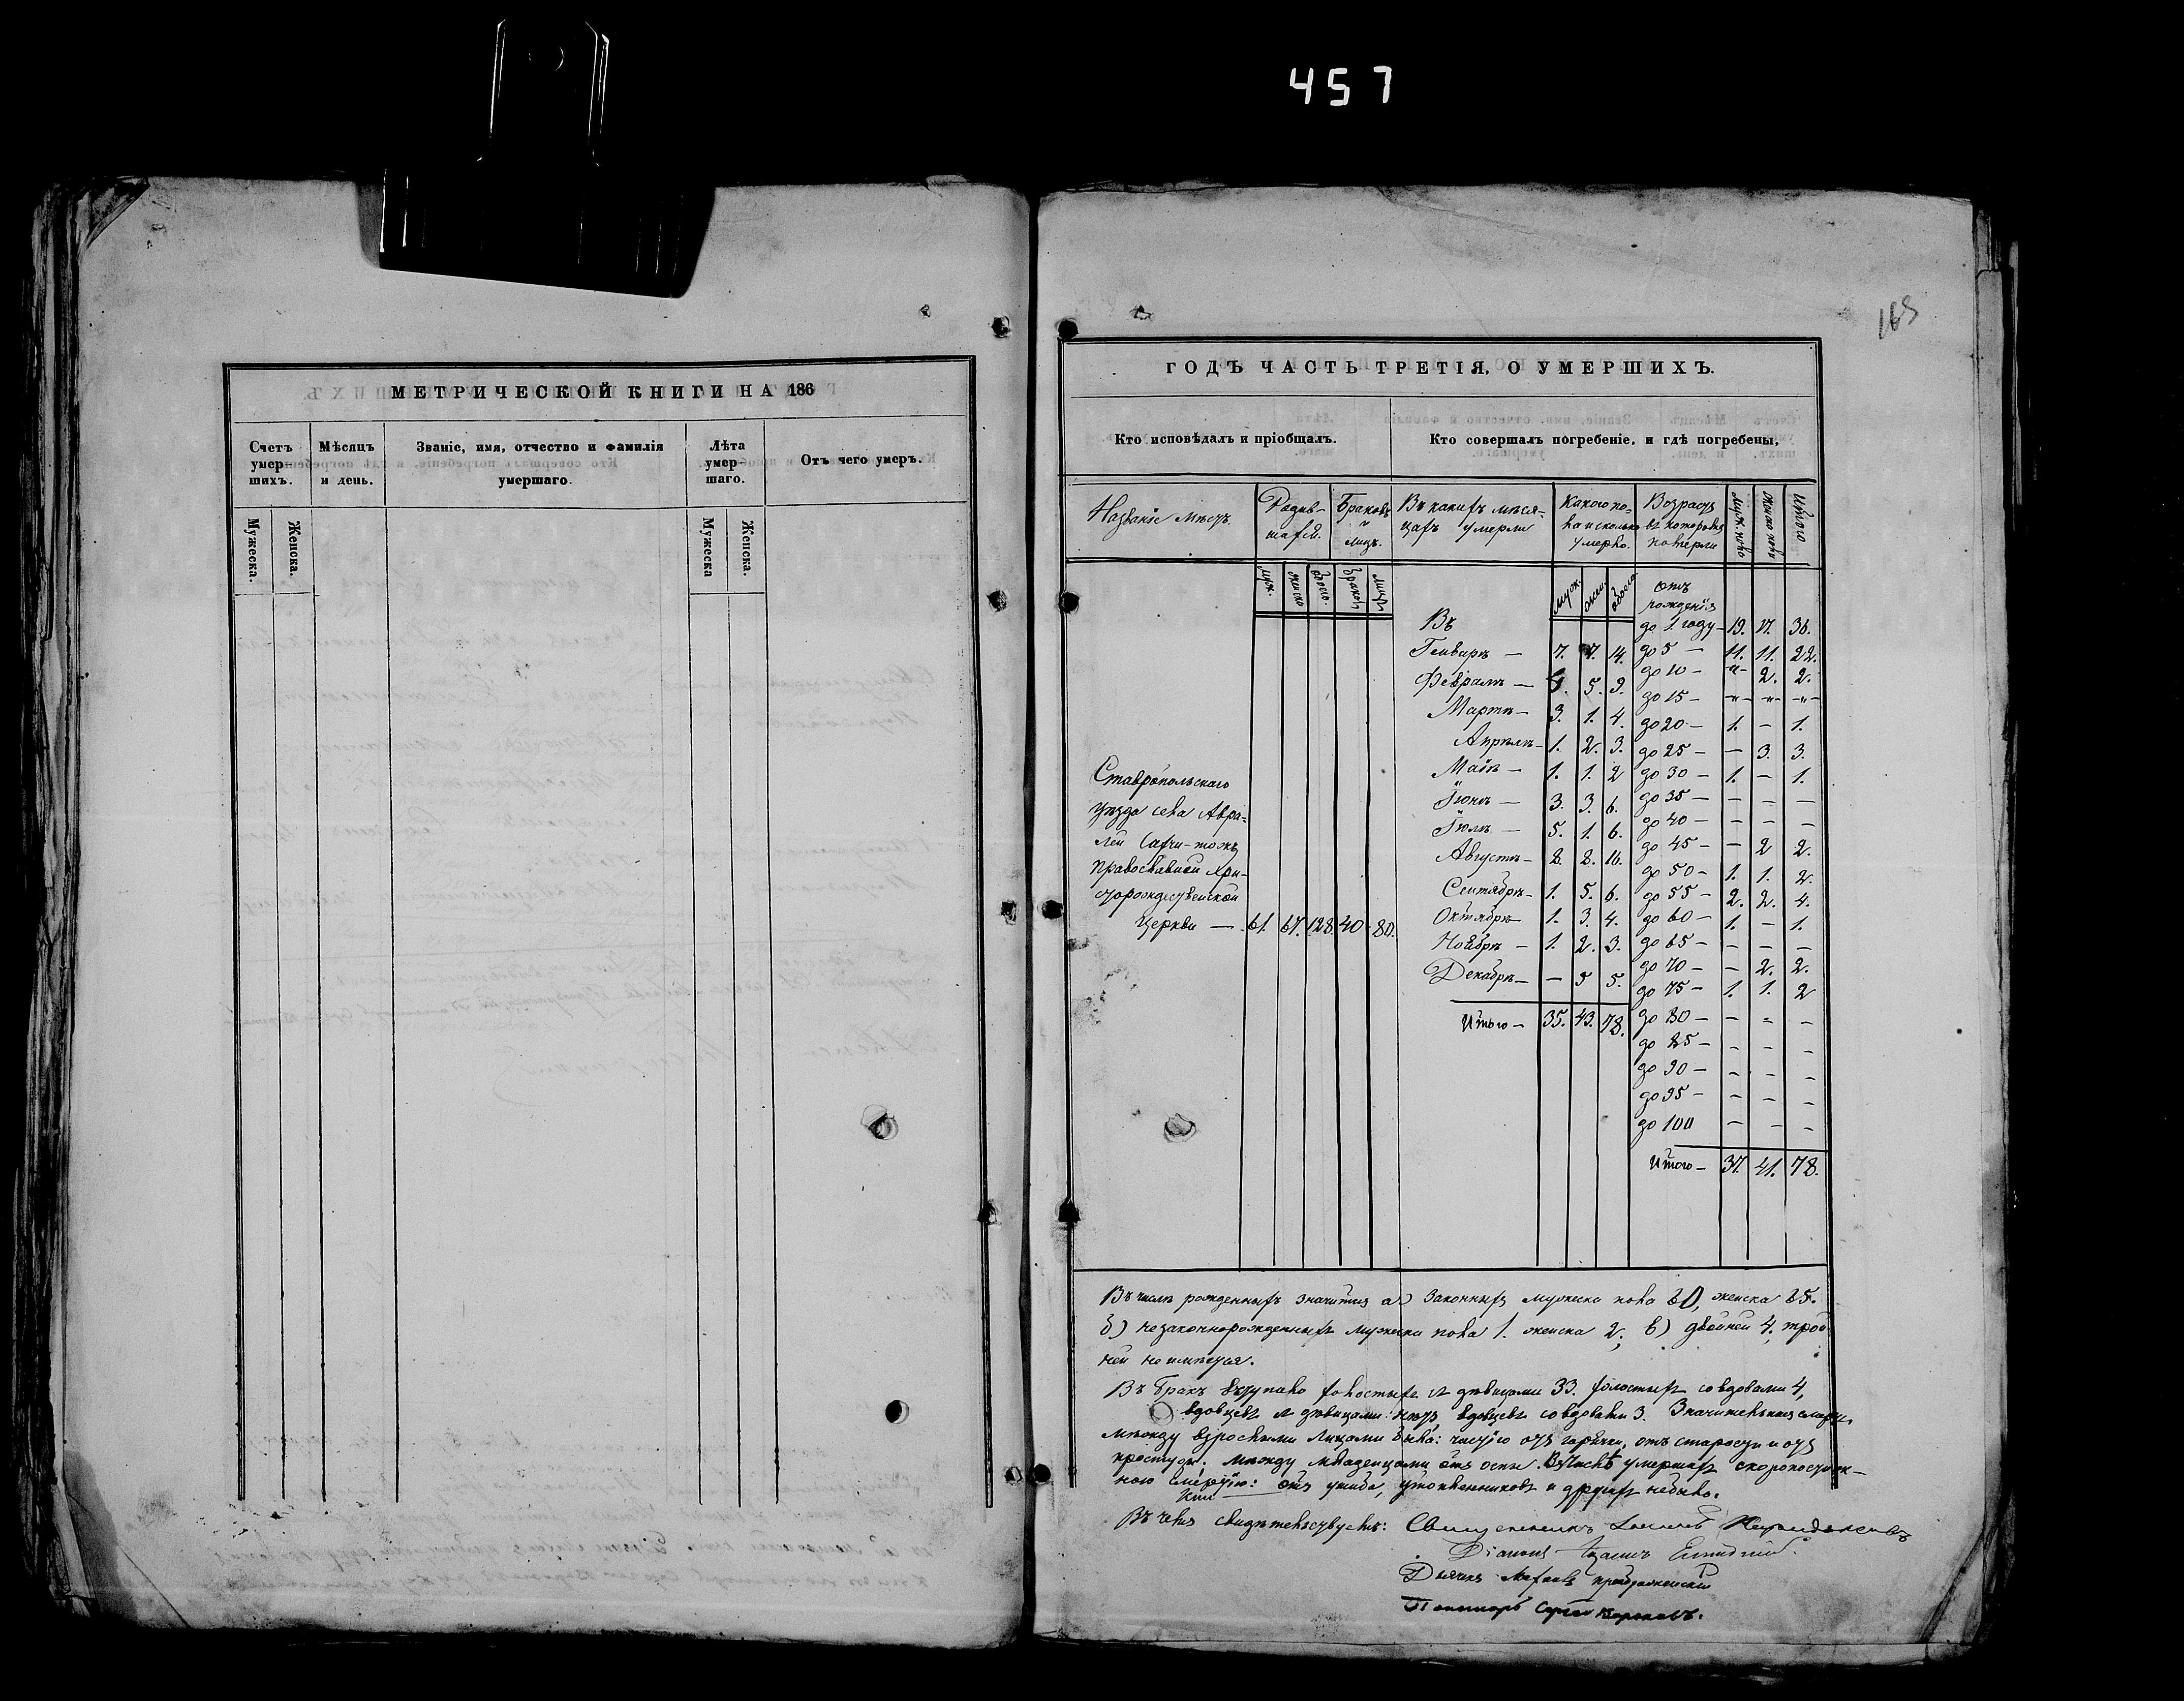 457
165
МЕТРИЧЕСКОЙ КНИГИ НА 186
Счетъ умер-шихъ.
Мѣсяцъ и день.
Званіе, имя, отчество и фамилія умершаго.
Лѣта умер-шаго.
Отъ чего умеръ.
Мужеска.
Женска.
Мужеска
Женска.
ГОДЪ ЧАСТЬ ТРЕТІЯ, О УМЕРШИХЪ.
Кто исповѣдалъ и пріобщалъ.
Кто совершалъ погребеніе, и гдѣ погребены,
Названіе мѣстъ.
Родив-шихся.
Браковъ и лицъ.
Въ какихъ мѣся-цахъ умерли
Какого по-ла и сколько умерло.
Возрастъ въ которомъ померли
Итого
муж.
женска
обоего.
браковъ
лицъ
муж.
жен.
обоего
Ставропольскаго
уѣзда села Авра-
лей
православной Хри-
сторождественской
церкви — 61. 67. 128. 40 80.
Въ
Генварѣ — 7. 7. 14.
Февралѣ — 5. 9.
Мартѣ — 3. 1. 4.
Апрѣлѣ — 1. 2. 3.
Маѣ — 1. 1. 2
Іюнѣ — 3. 3. 6.
Іюлѣ — 5. 1. 6.
Августѣ — 8. 8. 16.
Сентябрѣ — 1. 5. 6.
Октябрѣ — 1. 3. 4.
Ноябрѣ — 1. 2. 3.
Декабрѣ — — 5 5.
Итого — 35. 43. 78.
отъ
рожденія
до 1 году — 19. 17. 36.
до 5 — 11. 11. 22.
до 10 — -"- 2. 2.
до 15 — -"- -"- -"-
до 20 — 1. — 1.
до 25 — — 3. 3.
до 30 — 1. — 1.
до 35 — — — —
до 40 — — — —
до 45 — — 2 2.
до 50 — 1. 1. 2.
до 55 — 2. 2. 4.
до 60 — 1. — 1.
до 65 — — — —
до 70 — — 2. 2.
до 75 — 1. 1. 2
до 80 — — — —
до 85 — — — —
до 90 — — — —
до 95 — — — —
до 100 — — —
Итого — 37. 41. 78.
Въ числѣ рожденныхъ значится а) законныхъ мужеска пола 60, женска 65.
б) незаконнорожденныхъ мужеска пола 1. женска 2; в) двойней 4, трой
ней не имѣется.
Въ бракъ вступило холостыхъ съ дѣвицами 33. холостыхъ со вдовами 4,
вдовцевъ съ дѣвицами нѣтъ, вдовцевъ со вдовами 3.
между взрослыми лицами была: частію отъ горячки, отъ старости и отъ
простуды. между младенцами отъ оспы. Въ числѣ умершихъ скоропостиж-
ною смертію: отъ ушиба, утопленниковъ и другихъ небыло.
Въ чемъ свидѣтельствуемъ: Священникъ
Діаконъ
Дьячекъ
Пономарь Сергей